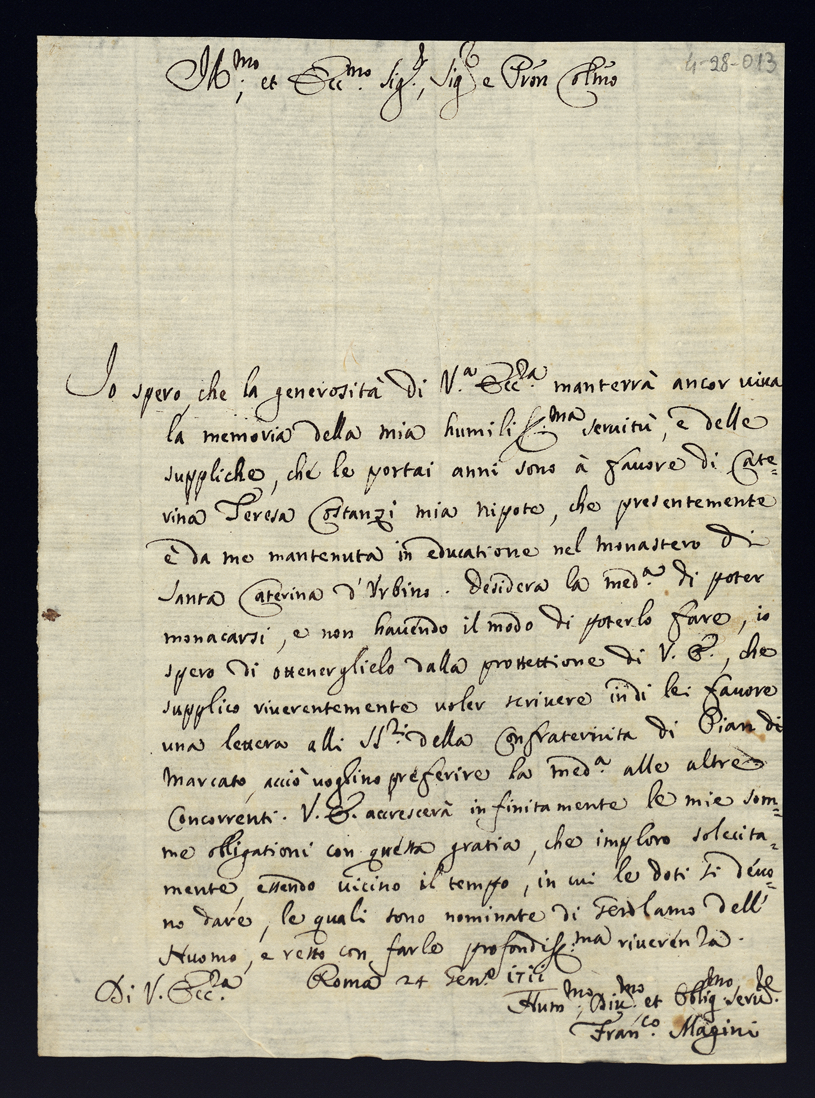 4-28-013
Ill:mo, et Ecc:mo Sig.r, Sig.r e Pron Colmo
Io spero, che la generosità di V.a Ecc:za manterrà ancor viva
la memoria della mia humiliss:ma servitù, e delle
suppliche, che le portai anni sono à favore di Cate=
rina Teresa Costanzi mia nipote, che presentemente
è da me mantenuta in educatione nel monastero di
Santa Caterina d'Urbino. Desidera la med.a di poter
monacarsi, e non havendo il modo di poterlo fare, io
spero di ottenerglielo dalla protettione di V. E., che
supplico riverentemente voler scrivere in di lei favore
una lettera alli SS.ri della Confraternita di Pian di
Marcato, acciò voglino preferire la med.a alle altre
Concorrenti. V. E. accrescerà infinitamente le mie som=
me obligationi con questa gratia, che imploro solecita=
mente, essendo vicino il tempo, in cui le doti si devo=
no dare, le quali sono nominate di Gerolamo dell'
Huomo, e resto con farle profondiss:ma riverenza.
Di V. Ecc:za Roma 24 Gen.o 1711
Hum:mo, Div:mo et Oblig:mo Serv:re
Fran:co Magini